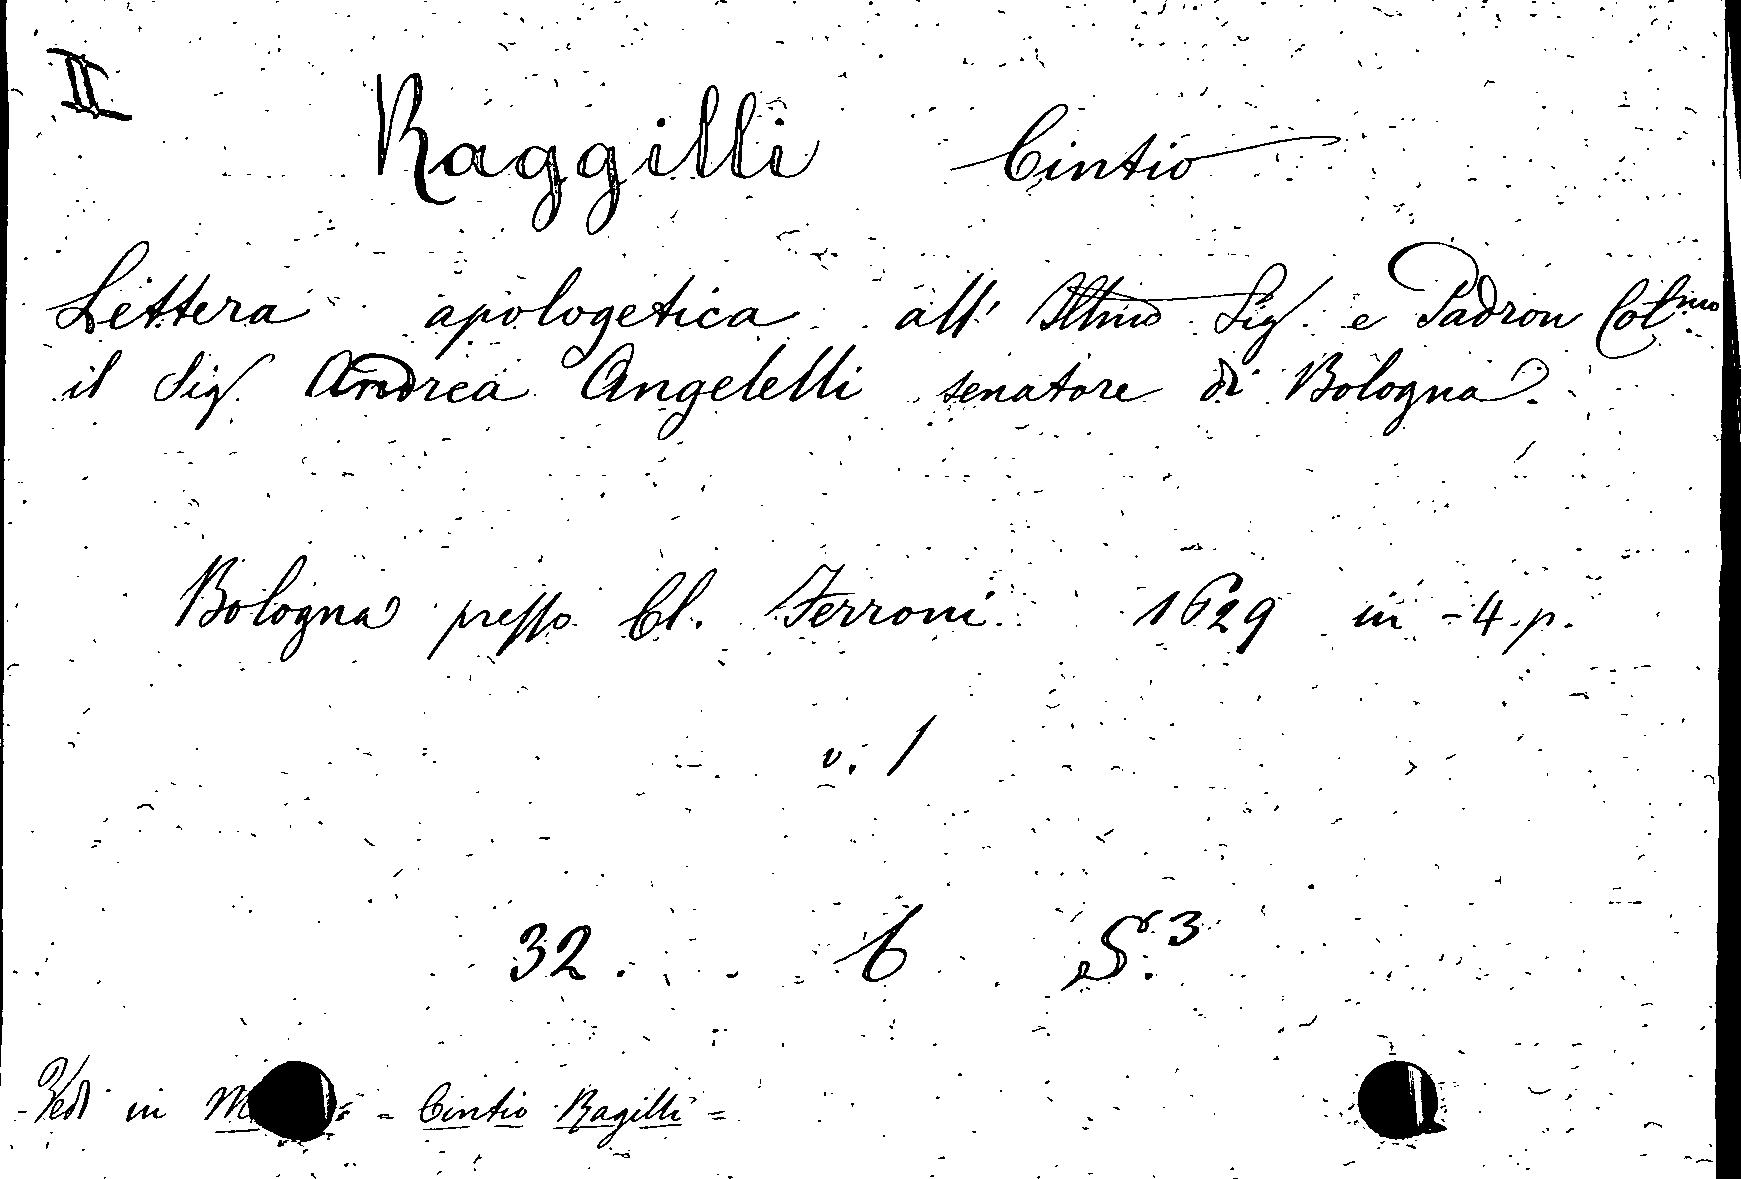 II
Raggilli Cintio
Lettera apologetica all' Illmo Sig. e Padron Colmo
il Sig. Andrea Angelelli senatore di Bologna.
Bologna presso Cl. Ferroni 1629 in -4. p.
v. 1
32. C S.3
Vedi in - Cintio Ragilli =